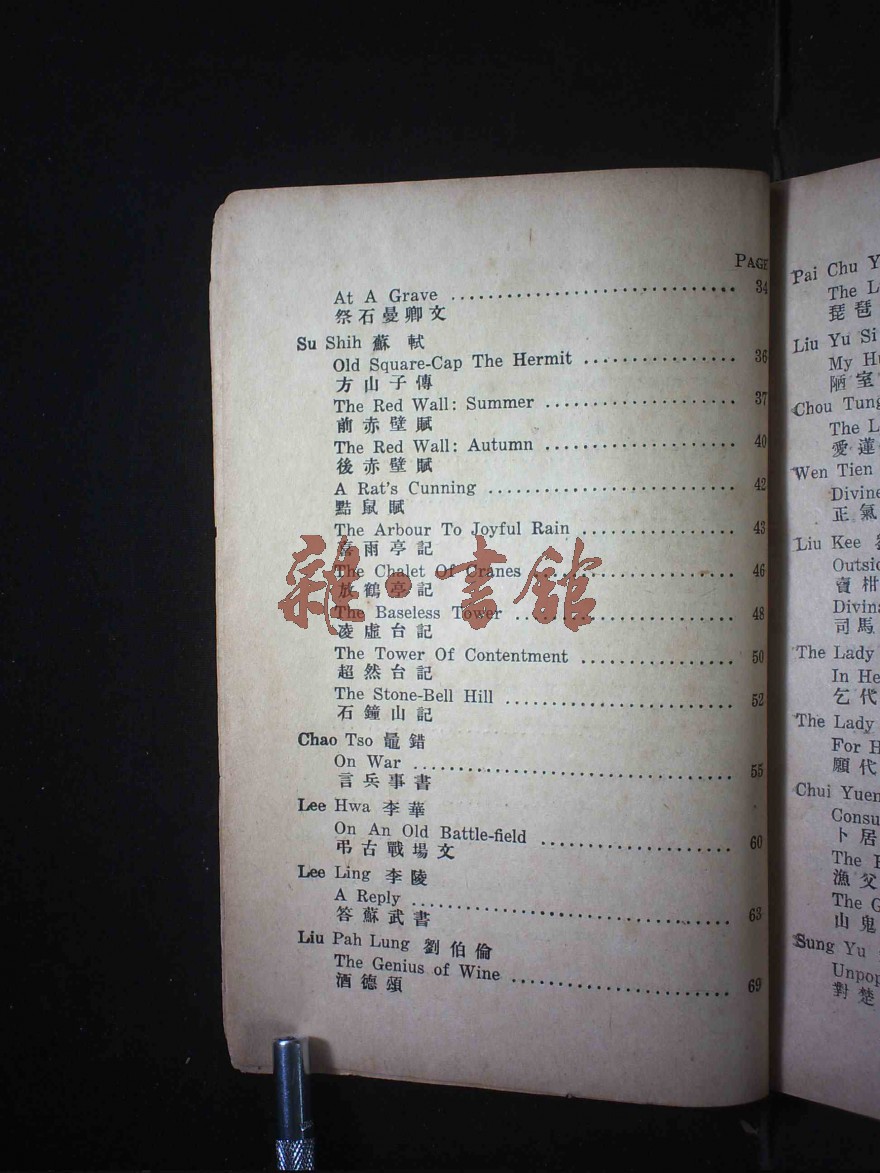 PAGE
At A Grave ................................ 34
祭石曼卿文
Su Shih 蘇軾
Old Square-Cap The Hermit .................. 36
方山子傳
The Red Wall: Summer ....................... 37
前赤壁賦
The Red Wall: Autumn ....................... 40
後赤壁賦
A Rat's Cunning ............................ 42
黠鼠賦
The Arbour To Joyful Rain .................. 43
喜雨亭記
The Chalet Of Cranes ....................... 46
放鶴亭記
The Baseless Tower ......................... 48
凌虛台記
The Tower Of Contentment ................... 50
超然台記
The Stone-Bell Hill ........................ 52
石鐘山記
Chao Tso 鼂錯
On War ..................................... 55
言兵事書
Lee Hwa 李華
On An Old Battle-field ..................... 60
弔古戰場文
Lee Ling 李陵
A Reply .................................... 63
答蘇武書
Liu Pah Lung 劉伯倫
The Genius of Wine ......................... 69
酒德頌
雜·書館
Pai Chu Y
The L
琵琶
Liu Yu Si
My Hu
陋室
Chou Tung
The L
愛蓮
Wen Tien
Divine
正氣
Liu Kee
Outsid
賣柑
Divina
司馬
The Lady
In He
乞代
The Lady
For H
願代
Chui Yuen
Consu
卜居
The F
漁父
The G
山鬼
Sung Yu
Unpop
對楚